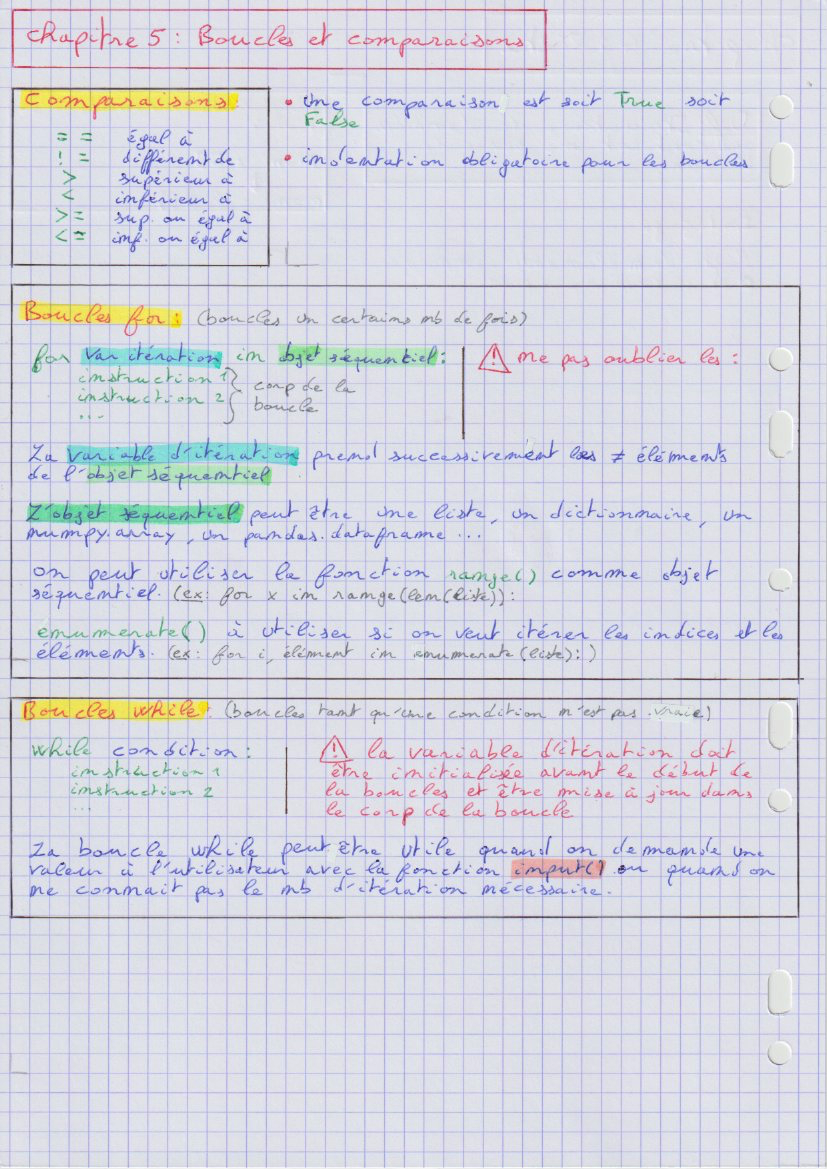 Chapitre 5 : Boucles et comparaisons
Comparaisons:
== égal à
!= différent de
> supérieur à
< inférieur à
>= sup. ou égal à
<= inf. ou égal à
• Une comparaison est soit True soit
False
• indentation obligatoire pour les boucles
Boucles for : (boucles un certains nb de fois)
for var itération in objet séquentiel :
instruction 1
instruction 2
...
corp de la
boucle
⚠ ne pas oublier les :
La variable d'itération prend successivement les ≠ éléments
de l'objet séquentiel
L'objet séquentiel peut être une liste, un dictionnaire, un
numpy.array, un pandas.dataframe ...
On peut utiliser la fonction range() comme objet
séquentiel. (ex: for x in range(len(liste)):
enumerate() à utiliser si on veut itérer les indices et les
éléments. (ex: for i, élément in enumerate(liste): )
Boucles while : (boucles tant qu'une condition n'est pas vraie)
while condition :
instruction 1
instruction 2
...
⚠ la variable d'itération doit
être initialisée avant le début de
la boucles et être mise à jour dans
le corp de la boucle
La boucle while peut être utile quand on demande une
valeur à l'utilisateur avec la fonction input() ou quand on
ne connait pas le nb d'itération nécessaire.